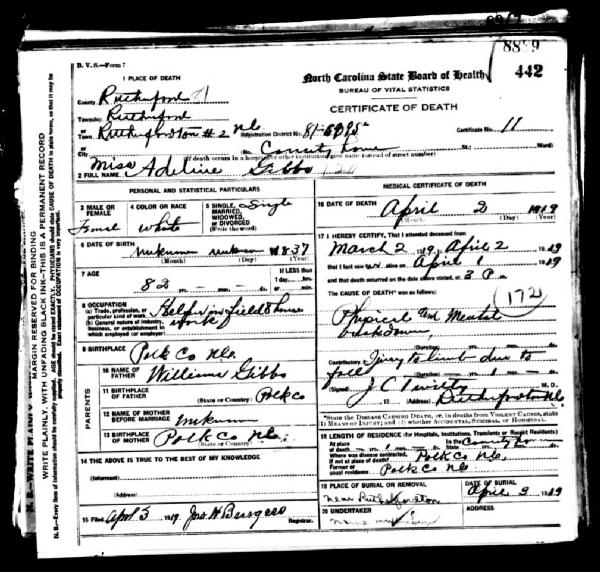 8889
442
B. V. S.—Form 7
1 PLACE OF DEATH
County Rutherford 81
Township Rutherford
or
Town Rutherfordton #2 NC
or
City
North Carolina State Board of Health
BUREAU OF VITAL STATISTICS
CERTIFICATE OF DEATH
Registration District No. 81-
Certificate No. 11
No. County home St.; Ward)
(If death occurred in a hospital or other institution, give name instead of street number)
2 FULL NAME Miss Adeline Gibbs
PERSONAL AND STATISTICAL PARTICULARS
3 MALE OR FEMALE
Female
4 COLOR OR RACE
white
5 SINGLE, MARRIED, WIDOWED, OR DIVORCED
(Write the word)
Single
6 DATE OF BIRTH
unknown unknown 1837
(Month) (Day) (Year)
7 AGE
82
If LESS than
1 day, hrs.
or min.
8 OCCUPATION
(a) Trade, profession, or particular kind of work
(b) General nature of industry, business, or establishment in which employed (or employer)
Help in field & house work
9 BIRTHPLACE
Polk Co NC.
PARENTS
10 NAME OF FATHER
William Gibbs
11 BIRTHPLACE OF FATHER
(State or County) Polk Co
12 NAME OF MOTHER BEFORE MARRIAGE
unknown
13 BIRTHPLACE OF MOTHER
(State or County)
Polk Co NC.
14 THE ABOVE IS TRUE TO THE BEST OF MY KNOWLEDGE
(Informant)
(Address)
15 Filed April 3 1919 Jno H Burgess
Registrar.
MEDICAL CERTIFICATE OF DEATH
16 DATE OF DEATH
April 2 1919
(Month) (Day) (Year)
17 I HEREBY CERTIFY, That I attended deceased from
March 2 1919, April 2 1919
that I last saw h alive on April 1 1919
and that death occurred on the date above stated, at 3 P m.
The CAUSE OF DEATH* was as follows:
(172)
Physical and Mental
breakdown
(Duration)
Contributory Injury to limb due to
fall
(Duration)
(Signed) J C Twitty M. D.
(Address) Rutherfordton NC
*State the DISEASE CAUSING DEATH, or, in deaths from VIOLENT CAUSES, state (1) MEANS OF INJURY; and (2) whether ACCIDENTAL, SUICIDAL, or HOMICIDAL.
18 LENGTH OF RESIDENCE (for Hospitals, Institutions, Transients or Recent Residents)
At place of death In the County home
Where was disease contracted, if not at place of death? Polk Co NC.
Former or usual residence Polk Co NC
19 PLACE OF BURIAL OR REMOVAL
near Rutherfordton
DATE OF BURIAL
April 3 1919
20 UNDERTAKER
ADDRESS
MARGIN RESERVED FOR BINDING
WRITE PLAINLY, WITH UNFADING BLACK INK—THIS IS A PERMANENT RECORD
N. B.—Every item of information should be carefully supplied. AGE should be stated EXACTLY. PHYSICIANS should state CAUSE OF DEATH in plain terms, so that it may be properly classified. Exact statement of OCCUPATION is very important.